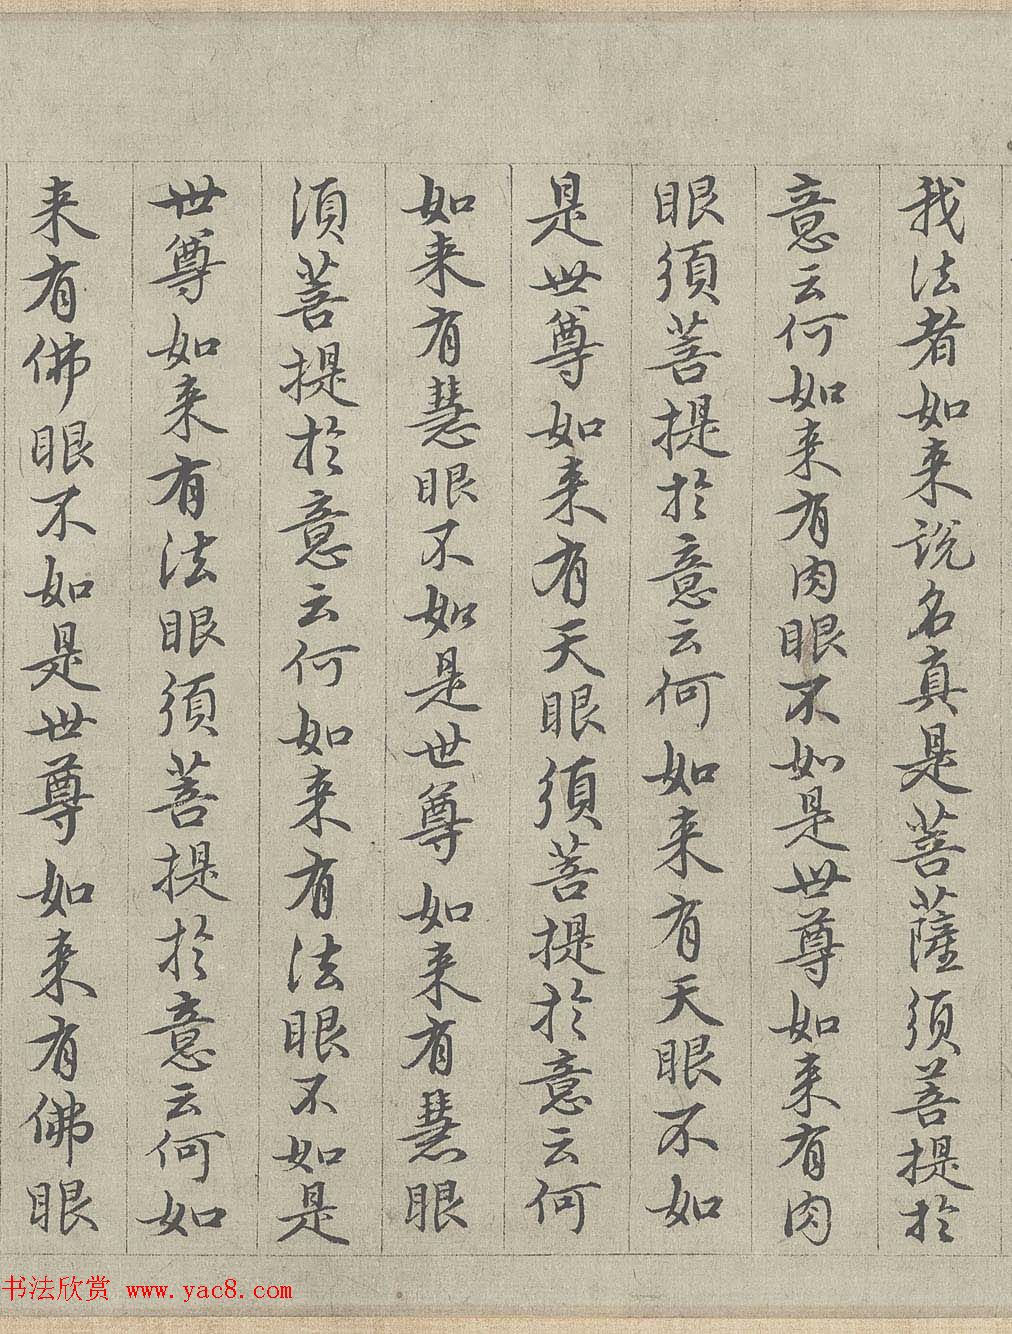 我法者如来说名真是菩薩須菩提於
意云何如来有肉眼不如是世尊如来有肉
眼須菩提於意云何如来有天眼不如
是世尊如来有天眼須菩提於意云何
如来有慧眼不如是世尊如来有慧眼
須菩提於意云何如来有法眼不如是
世尊如来有法眼須菩提於意云何如
来有佛眼不如是世尊如来有佛眼
书法欣赏 www.yac8.com